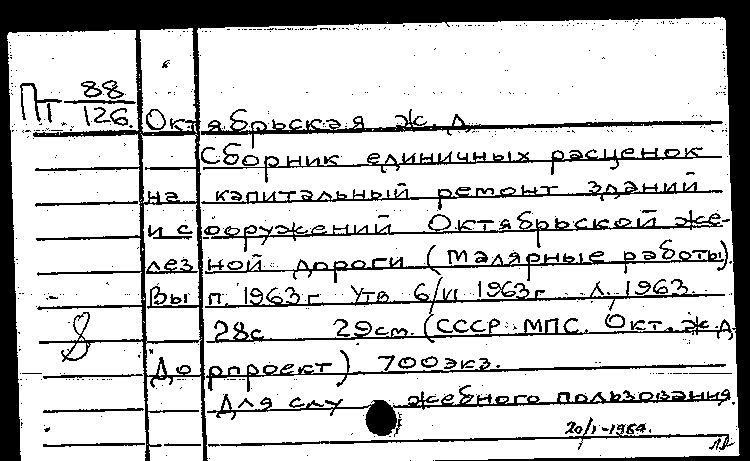 Пт. 88/126. Октябрьская ж. д.
Сборник единичных расценок
на капитальный ремонт зданий
и сооружений Октябрьской же-
лезной дороги (малярные работы).
Вып. 1963г. Утв. 6/VI 1963г. Л., 1963.
28с. 29см. (СССР. МПС. Окт. ж.д.
Дорпроект). 700экз.
Для служебного пользования.
20/I-1964.